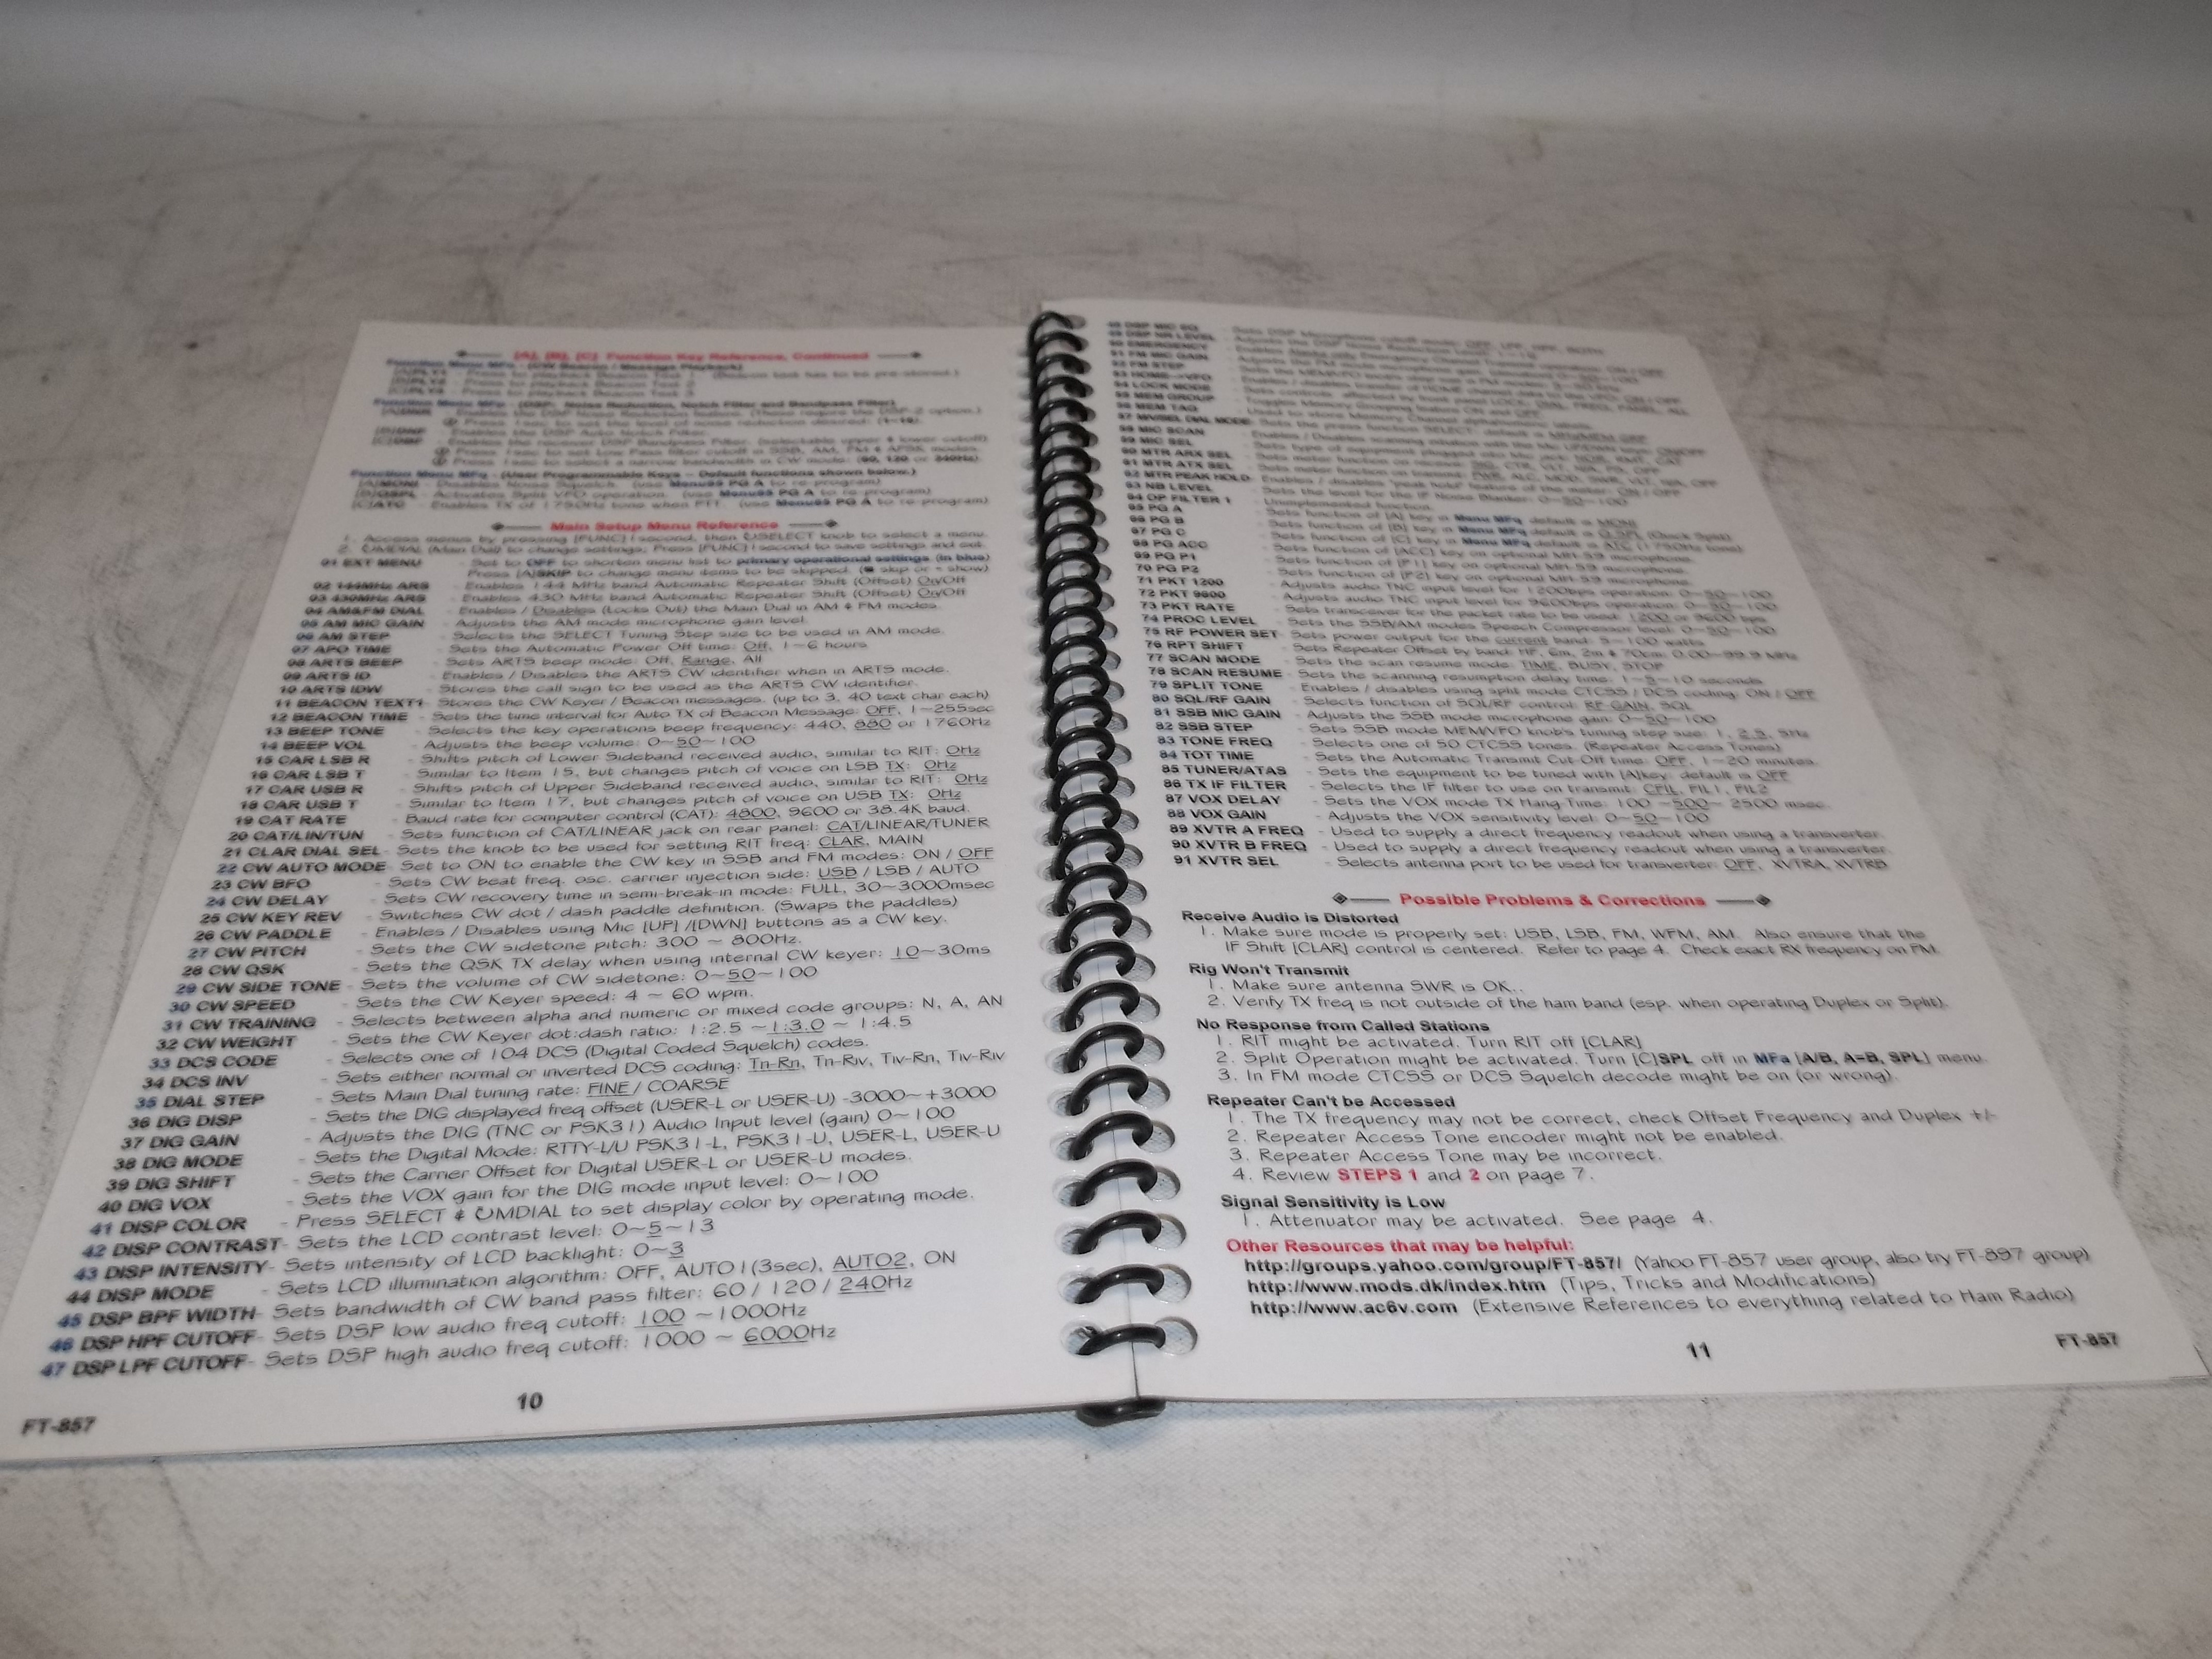 [A], [B], [C] Function Key Reference, Continued
Function Menu MFo - (CW Beacon / Message Playback)
Function Menu MFp - (DSP: Noise Reduction, Notch Filter and Bandpass Filter)
Function Menu MFq - (User Programmable Keys - Default functions shown below.)
[A]MONI - Disables Noise Squelch. (use Menu65 PG A to re-program)
[B]QSPL - Activates Split VFO operation. (use Menu65 PG A to re-program)
[C]ATC - Enables TX of 1750Hz tone when PTT. (use Menu65 PG A to re-program)
Main Setup Menu Reference
1. Access menus by pressing [FUNC] 1 second, then SELECT knob to select a menu.
2. DIAL (Main Dial) to change settings; Press [FUNC] 1 second to save settings and exit.
01 EXT MENU - Set to OFF to shorten menu list to primary operational settings (in blue)
Press [A]SKIP to change menu items to be skipped. (■ skip or - show)
02 144MHz ARS - Enables 144 MHz band Automatic Repeater Shift (Offset) On/Off
03 430MHz ARS - Enables 430 MHz band Automatic Repeater Shift (Offset) On/Off
04 AM&FM DIAL - Enables / Disables (Locks Out) the Main Dial in AM & FM modes.
05 AM MIC GAIN - Adjusts the AM mode microphone gain level.
06 AM STEP - Selects the SELECT Tuning Step size to be used in AM mode.
07 APO TIME - Sets the Automatic Power Off time: Off, 1~6 hours
08 ARTS BEEP - Sets ARTS beep mode: Off, Range, All
09 ARTS ID - Enables / Disables the ARTS CW identifier when in ARTS mode.
10 ARTS IDW - Stores the call sign to be used as the ARTS CW identifier.
11 BEACON TEXT1 - Stores the CW Keyer / Beacon messages. (up to 3, 40 text char each)
12 BEACON TIME - Sets the time interval for Auto TX of Beacon Message: OFF, 1~255sec
13 BEEP TONE - Selects the key operations beep frequency: 440, 880 or 1760Hz
14 BEEP VOL - Adjusts the beep volume: 0~50~100
15 CAR LSB R - Shifts pitch of Lower Sideband received audio, similar to RIT: 0Hz
16 CAR LSB T - Similar to Item 15, but changes pitch of voice on LSB TX: 0Hz
17 CAR USB R - Shifts pitch of Upper Sideband received audio, similar to RIT: 0Hz
18 CAR USB T - Similar to Item 17, but changes pitch of voice on USB TX: 0Hz
19 CAT RATE - Baud rate for computer control (CAT): 4800, 9600 or 38.4K baud.
20 CAT/LIN/TUN - Sets function of CAT/LINEAR jack on rear panel: CAT/LINEAR/TUNER
21 CLAR DIAL SEL - Sets the knob to be used for setting RIT freq: CLAR, MAIN
22 CW AUTO MODE - Set to ON to enable the CW key in SSB and FM modes: ON / OFF
23 CW BFO - Sets CW beat freq. osc. carrier injection side: USB / LSB / AUTO
24 CW DELAY - Sets CW recovery time in semi-break-in mode: FULL, 30~3000msec
25 CW KEY REV - Switches CW dot / dash paddle definition. (Swaps the paddles)
26 CW PADDLE - Enables / Disables using Mic [UP] /[DWN] buttons as a CW key.
27 CW PITCH - Sets the CW sidetone pitch: 300 ~ 800Hz.
28 CW QSK - Sets the QSK TX delay when using internal CW keyer: 10~30ms
29 CW SIDE TONE - Sets the volume of CW sidetone: 0~50~100
30 CW SPEED - Sets the CW Keyer speed: 4 ~ 60 wpm.
31 CW TRAINING - Selects between alpha and numeric or mixed code groups: N, A, AN
32 CW WEIGHT - Sets the CW Keyer dot:dash ratio: 1:2.5 ~1:3.0 ~ 1:4.5
33 DCS CODE - Selects one of 104 DCS (Digital Coded Squelch) codes.
34 DCS INV - Sets either normal or inverted DCS coding: Tn-Rn, Tn-Riv, Tiv-Rn, Tiv-Riv
35 DIAL STEP - Sets Main Dial tuning rate: FINE / COARSE
36 DIG DISP - Sets the DIG displayed freq offset (USER-L or USER-U) -3000~+3000
37 DIG GAIN - Adjusts the DIG (TNC or PSK31) Audio Input level (gain) 0~100
38 DIG MODE - Sets the Digital Mode: RTTY-L/U PSK31-L, PSK31-U, USER-L, USER-U
39 DIG SHIFT - Sets the Carrier Offset for Digital USER-L or USER-U modes.
40 DIG VOX - Sets the VOX gain for the DIG mode input level: 0~100
41 DISP COLOR - Press SELECT & DIAL to set display color by operating mode.
42 DISP CONTRAST- Sets the LCD contrast level: 0~5~13
43 DISP INTENSITY- Sets intensity of LCD backlight: 0~3
44 DISP MODE - Sets LCD illumination algorithm: OFF, AUTO1(3sec), AUTO2, ON
45 DSP BPF WIDTH- Sets bandwidth of CW band pass filter: 60 / 120 / 240Hz
46 DSP HPF CUTOFF- Sets DSP low audio freq cutoff: 100 ~1000Hz
47 DSP LPF CUTOFF- Sets DSP high audio freq cutoff: 1000 ~ 6000Hz
10
FT-857
64 OP FILTER 1 - Unimplemented function.
65 PG A - Sets function of [A] key in Menu MFq default is MONI
66 PG B - Sets function of [B] key in Menu MFq default is Q.SPL (Quick Split)
67 PG C - Sets function of [C] key in Menu MFq default is ATC (1750Hz tone)
68 PG ACC - Sets function of [ACC] key on optional MH-59 microphone.
69 PG P1 - Sets function of [P1] key on optional MH-59 microphone.
70 PG P2 - Sets function of [P2] key on optional MH-59 microphone.
71 PKT 1200 - Adjusts audio TNC input level for 1200bps operation: 0~50~100
72 PKT 9600 - Adjusts audio TNC input level for 9600bps operation: 0~50~100
73 PKT RATE - Sets transceiver for the packet rate to be used: 1200 or 9600 bps
74 PROC LEVEL - Sets the SSB/AM modes Speech Compressor level: 0~50~100
75 RF POWER SET - Sets power output for the current band: 5~100 watts
76 RPT SHIFT - Sets Repeater Offset by band: HF, 6m, 2m & 70cm: 0.00~99.9 MHz
77 SCAN MODE - Sets the scan resume mode: TIME, BUSY, STOP
78 SCAN RESUME - Sets the scanning resumption delay time: 1~5~10 seconds
79 SPLIT TONE - Enables / disables using split mode CTCSS / DCS coding: ON / OFF
80 SQL/RF GAIN - Selects function of SQL/RF control: RF-GAIN, SQL
81 SSB MIC GAIN - Adjusts the SSB mode microphone gain: 0~50~100
82 SSB STEP - Sets SSB mode MEM/VFO knob's tuning step size: 1, 2.5, 5Hz
83 TONE FREQ - Selects one of 50 CTCSS tones. (Repeater Access Tones)
84 TOT TIME - Sets the Automatic Transmit Cut-Off time: OFF, 1~20 minutes.
85 TUNER/ATAS - Sets the equipment to be tuned with [A]key: default is OFF
86 TX IF FILTER - Selects the IF filter to use on transmit: CFIL, FIL1, FIL2
87 VOX DELAY - Sets the VOX mode TX Hang-Time: 100 ~500~ 2500 msec.
88 VOX GAIN - Adjusts the VOX sensitivity level: 0~50~100
89 XVTR A FREQ - Used to supply a direct frequency readout when using a transverter.
90 XVTR B FREQ - Used to supply a direct frequency readout when using a transverter.
91 XVTR SEL - Selects antenna port to be used for transverter: OFF, XVTRA, XVTRB
Possible Problems & Corrections
Receive Audio is Distorted
1. Make sure mode is properly set: USB, LSB, FM, WFM, AM. Also ensure that the
IF Shift [CLAR] control is centered. Refer to page 4. Check exact RX frequency on FM.
Rig Won't Transmit
1. Make sure antenna SWR is OK..
2. Verify TX freq is not outside of the ham band (esp. when operating Duplex or Split).
No Response from Called Stations
1. RIT might be activated. Turn RIT off [CLAR]
2. Split Operation might be activated. Turn [C]SPL off in MFa [A/B, A=B, SPL] menu.
3. In FM mode CTCSS or DCS Squelch decode might be on (or wrong).
Repeater Can't be Accessed
1. The TX frequency may not be correct, check Offset Frequency and Duplex +/-
2. Repeater Access Tone encoder might not be enabled.
3. Repeater Access Tone may be incorrect.
4. Review STEPS 1 and 2 on page 7.
Signal Sensitivity is Low
1. Attenuator may be activated. See page 4.
Other Resources that may be helpful:
http://groups.yahoo.com/group/FT-857/ (Yahoo FT-857 user group, also try FT-897 group)
http://www.mods.dk/index.htm (Tips, Tricks and Modifications)
http://www.ac6v.com (Extensive References to everything related to Ham Radio)
11
FT-857